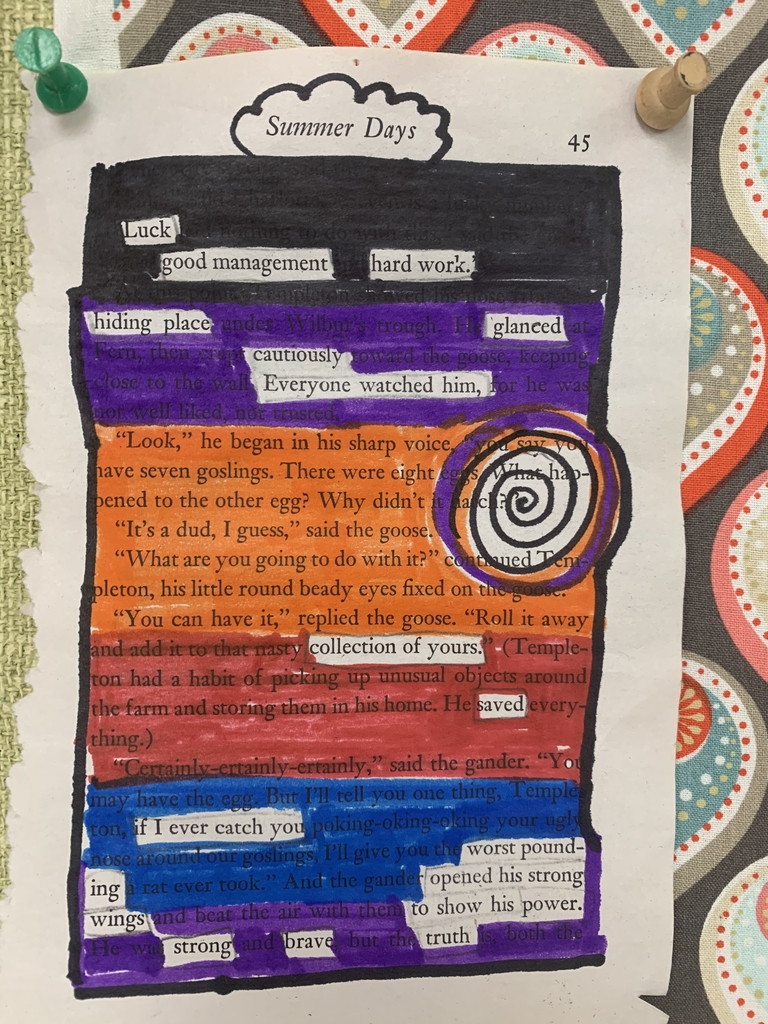 Summer Days
45
Luck nothing to do with
good management hard work.'
his nose
hiding place under Wilbur's trough. He glanced at
Fern, then crept cautiously toward the goose, keeping
close to the wall. Everyone watched him, for he was
not well liked, not trusted.
“Look,” he began in his sharp voice, “you say you
have seven goslings. There were eight eggs. What hap-
pened to the other egg? Why didn't it hatch?”
“It's a dud, I guess,” said the goose.
“What are you going to do with it?” continued Tem-
pleton, his little round beady eyes fixed on the goose.
“You can have it,” replied the goose. “Roll it away
and add it to that nasty collection of yours.” (Temple-
ton had a habit of picking up unusual objects around
the farm and storing them in his home. He saved every-
thing.)
“Certainly-ertainly-ertainly,” said the gander. “You
may have the egg. But I'll tell you one thing, Temple-
ton, if I ever catch you poking-oking-oking your ugly
nose around our goslings, I'll give you the worst pound-
ing a rat ever took.” And the gander opened his strong
wings and beat the air with them to show his power.
He was strong and brave, but the truth is, both the